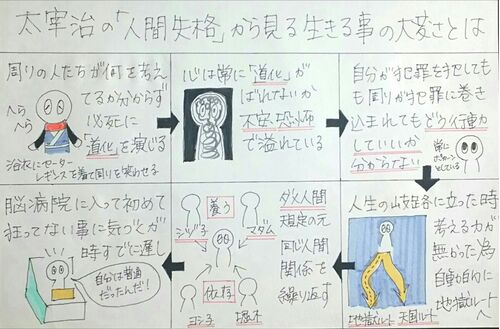 太宰治の「人間失格」から見る生きる事の大変さとは
周りの人たちが何を考え
てるか分からず
必死に
「道化」を演じる
へら
へら
浴衣にセーター
レギンスを着て周りを笑わせる
心は常に「道化」が
ばれないか
不安、恐怖
で溢れている
自分が犯罪を犯しても
も周りが犯罪に巻き
込まれてもどう行動
していいか
分からない
常に
としている
人生の岐路に立った時
考える力が
無かった為
自ら
地獄ルート
へ
地獄ルート
天国ルート
ダメ人間
規定の元
同じ人間
関係を
繰り返す
養う
シヅ子
マダム
依存
ヨシ子
堀木
脳病院に入って初めて
狂ってない事に気づくが
時すでに遅し
自分は普通
だったんだ!